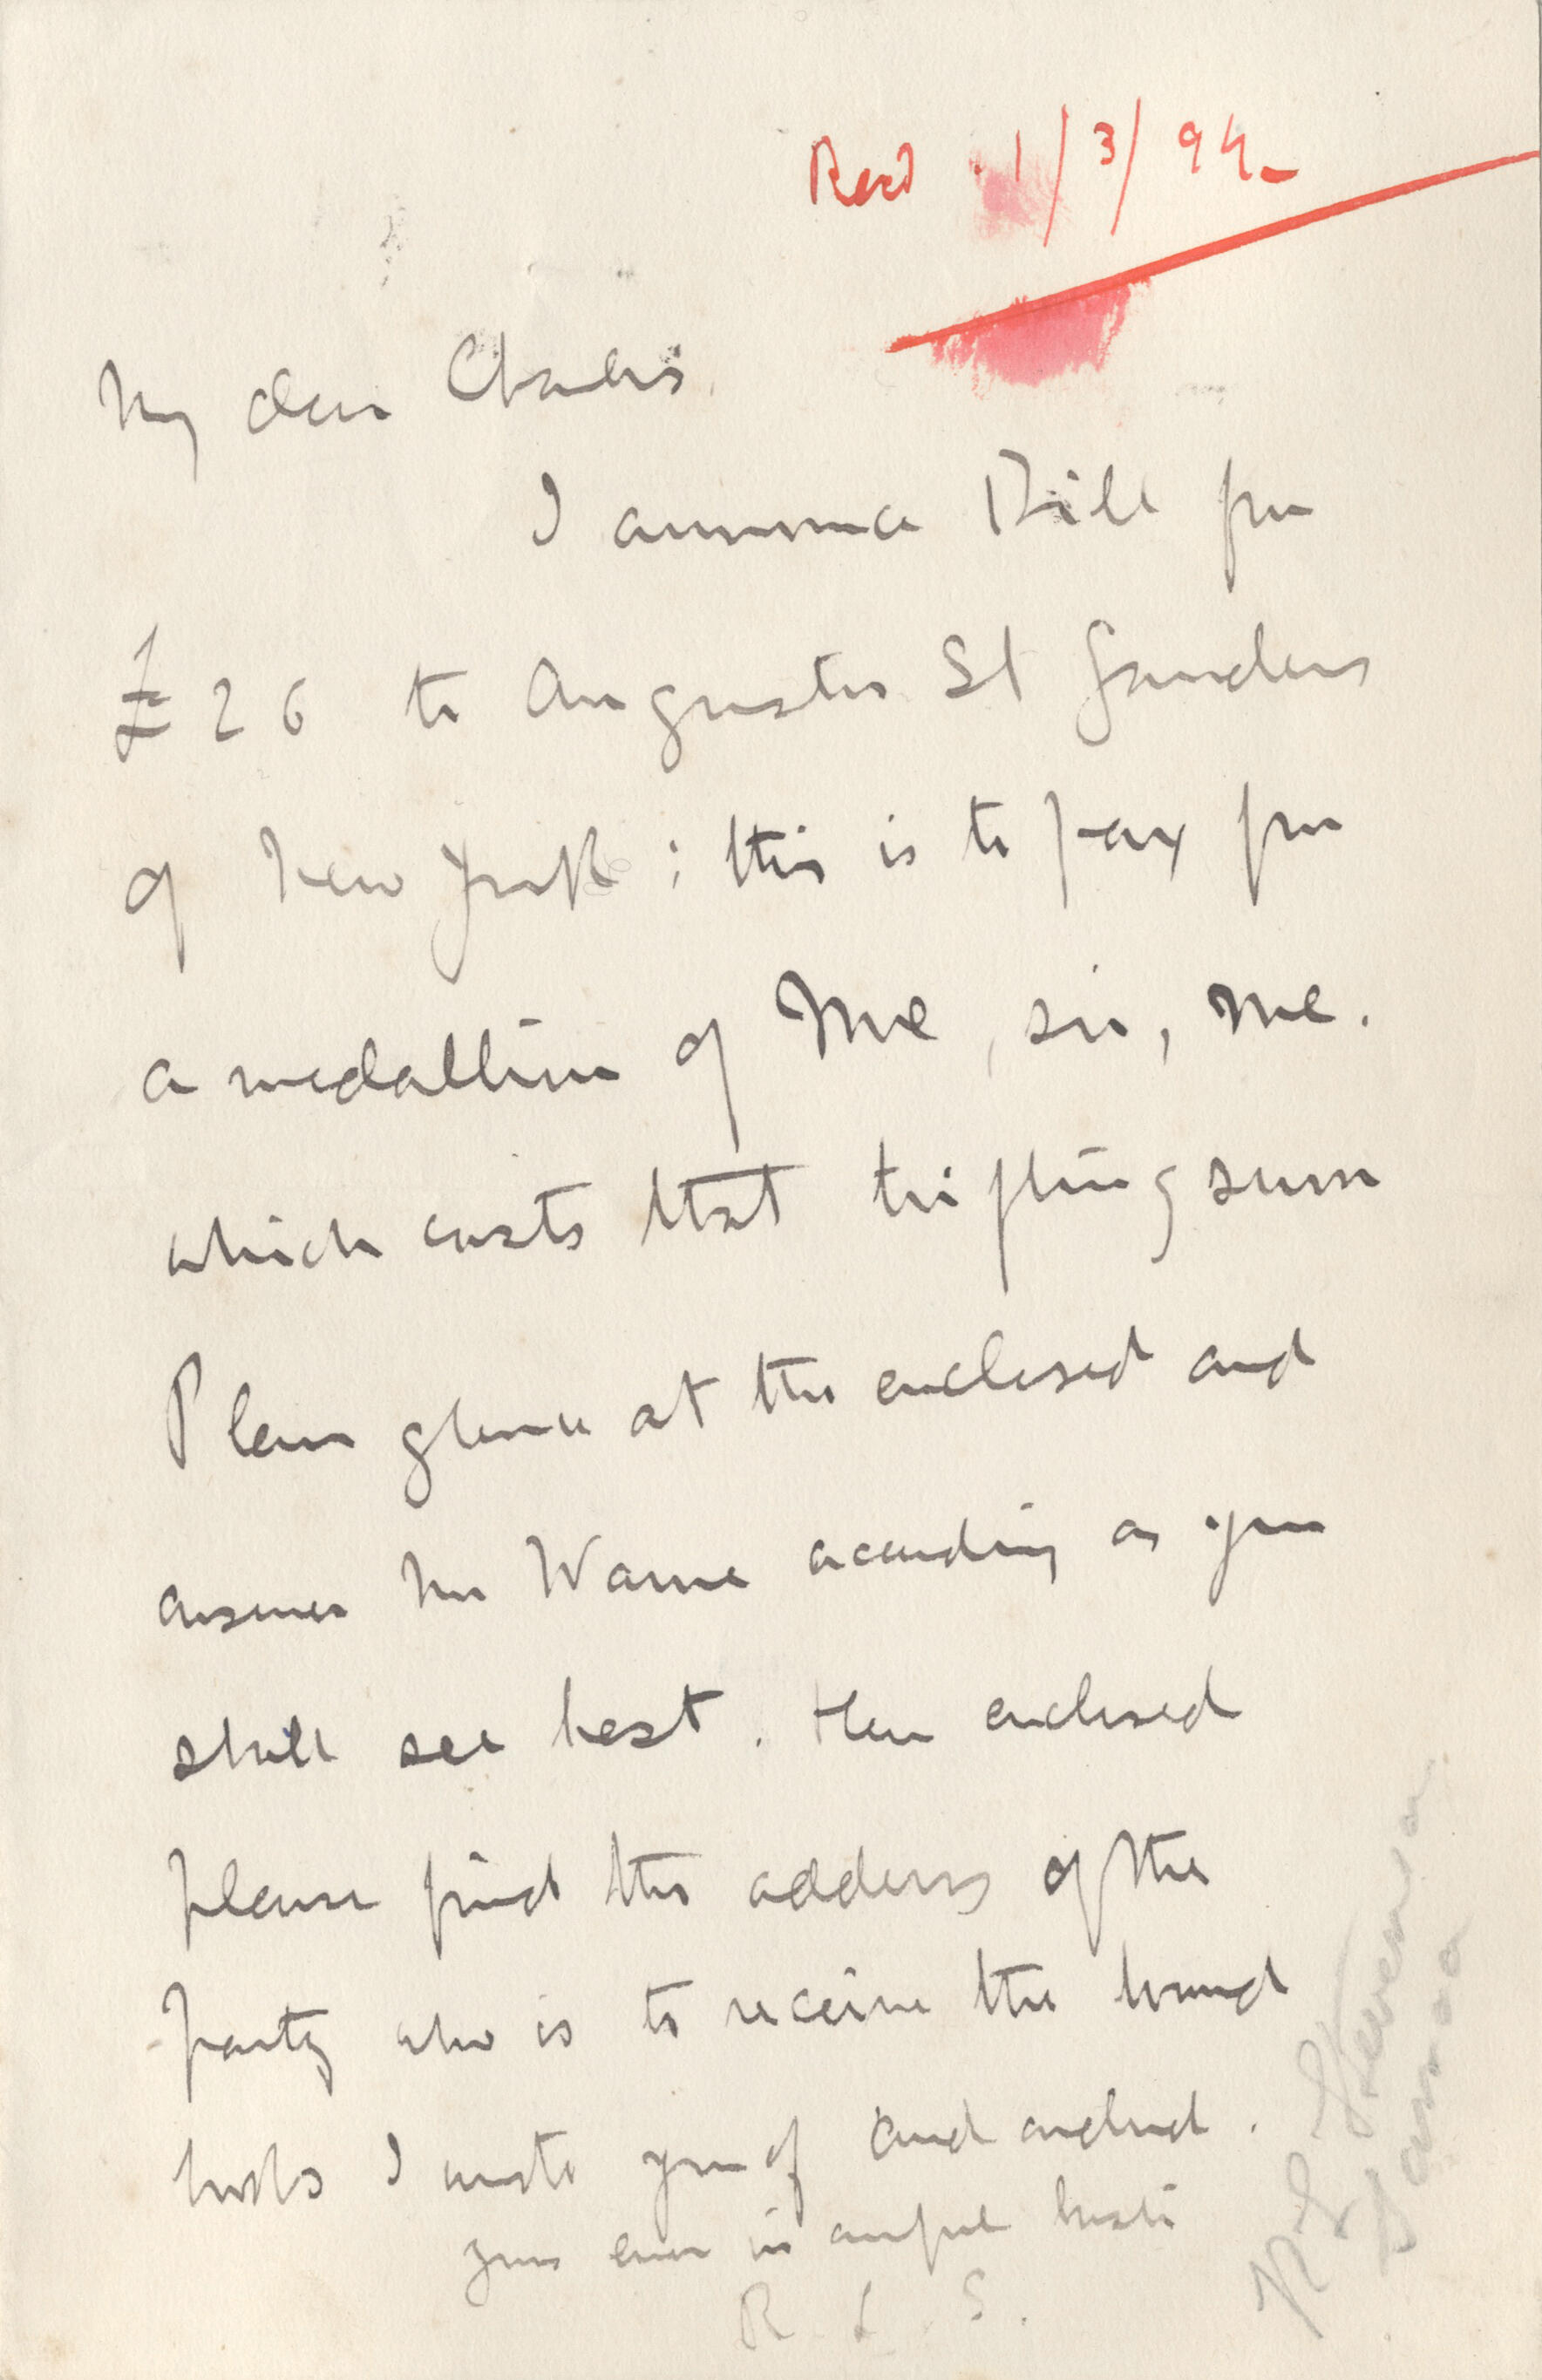 Recd 1/3/94
My dear Charles,
I announce Bill for
£26 to Augustus St Gaudens
of New York; this is to pay for
a medallion of Me, sir, me.
which costs that trifling sum
Please glance at the enclosed and
answer Mr Warne according as you
shall see best. Here enclosed
please find the address of the
party who is to receive the bound
books I wrote you of and ordered.
yours ever in awful haste
R L S.
R L Stevenson
Samoa